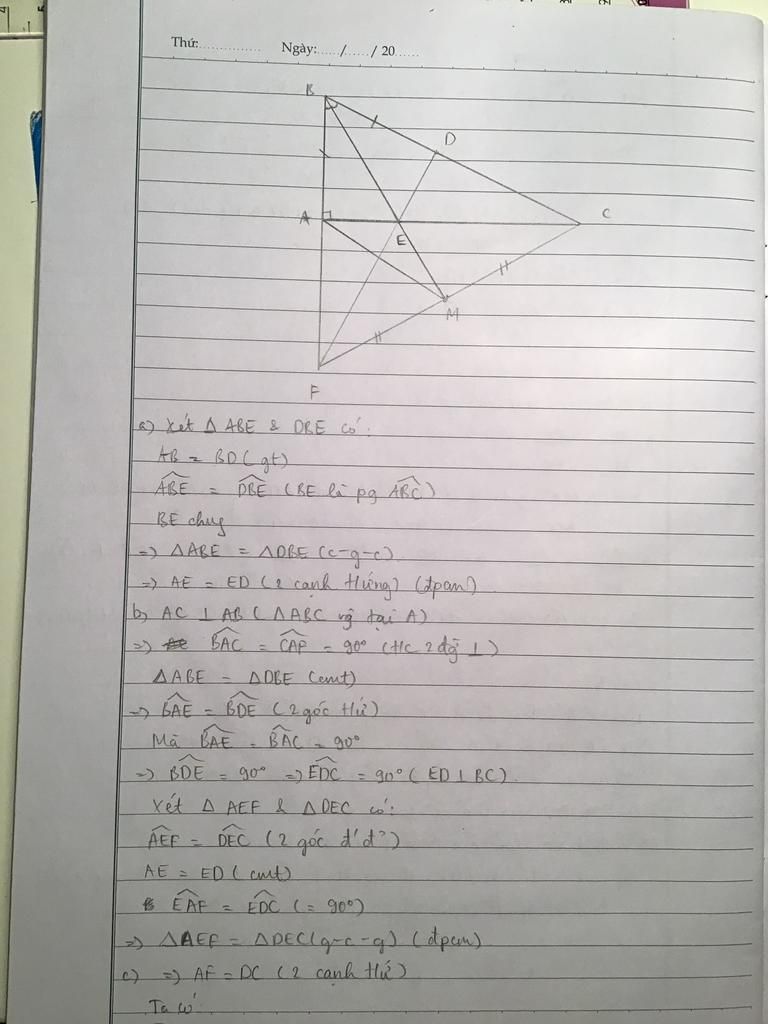 Thứ:............... Ngày:....../....../ 20......
B
D
A
C
E
M
F
a) Xét Δ ABE & DBE có:
AB = BD (gt)
ABE = DBE (BE là pg ABC)
BE chung
=> ΔABE = ΔDBE (c-g-c)
=> AE = ED (2 cạnh tướng) (đpcm)
b, AC ⊥ AB (ΔABC vg tại A)
=> BAC = CAF = 90° (t/c 2 đg ⊥)
ΔABE = ΔDBE (cmt)
=> BAE = BDE (2 góc tứ)
Mà BAE = BAC = 90°
=> BDE = 90° => EDC = 90° (ED ⊥ BC).
Xét Δ AEF & ΔDEC có:
AEF = DEC (2 góc đ'đ²)
AE = ED (cmt)
EAF = EDC (= 90°)
=> ΔAEF = ΔDEC (g-c-g) (đpcm)
c) => AF = DC (2 cạnh tứ)
Ta có